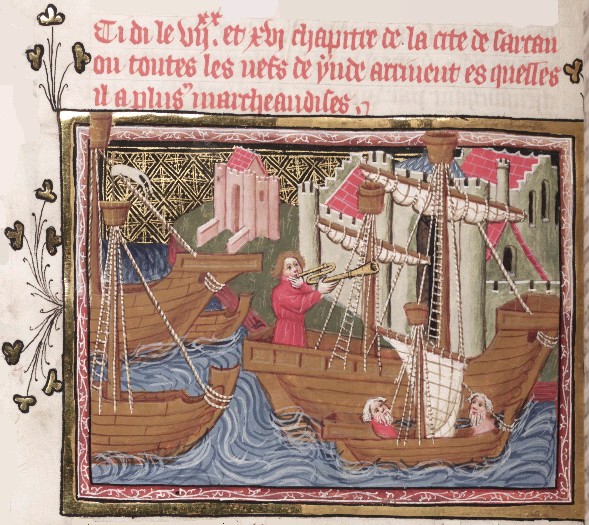 Ci di le vii.xx et xvi chapitre de la cite de sartan
ou toutes les nefs de ynde arriuent es quelles
il a plus marcheandises